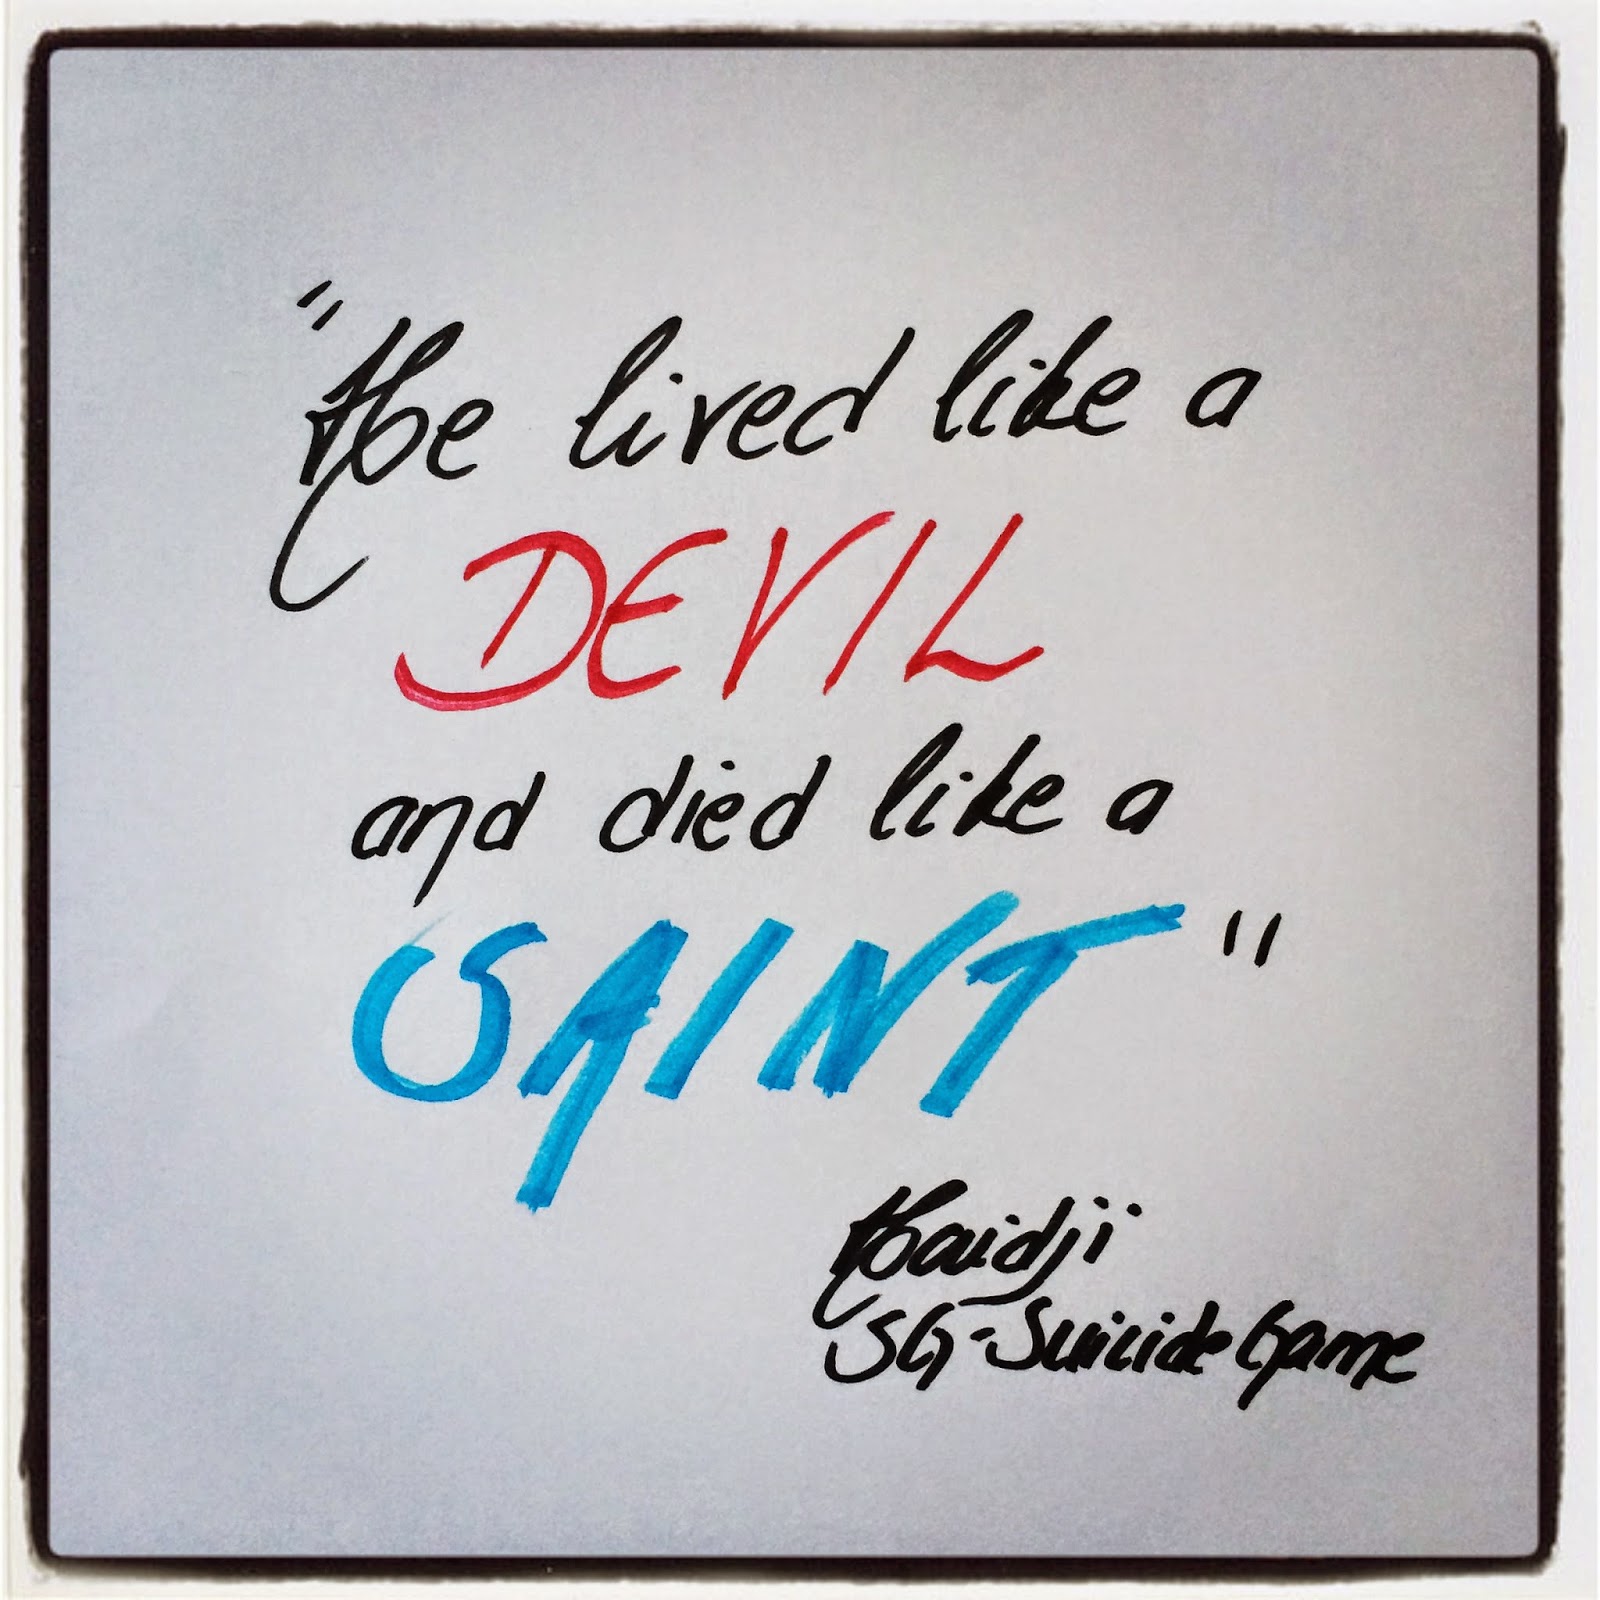 "He lived like a
DEVIL
and died like a
SAINT"
Haidji
SG-Suicide Game